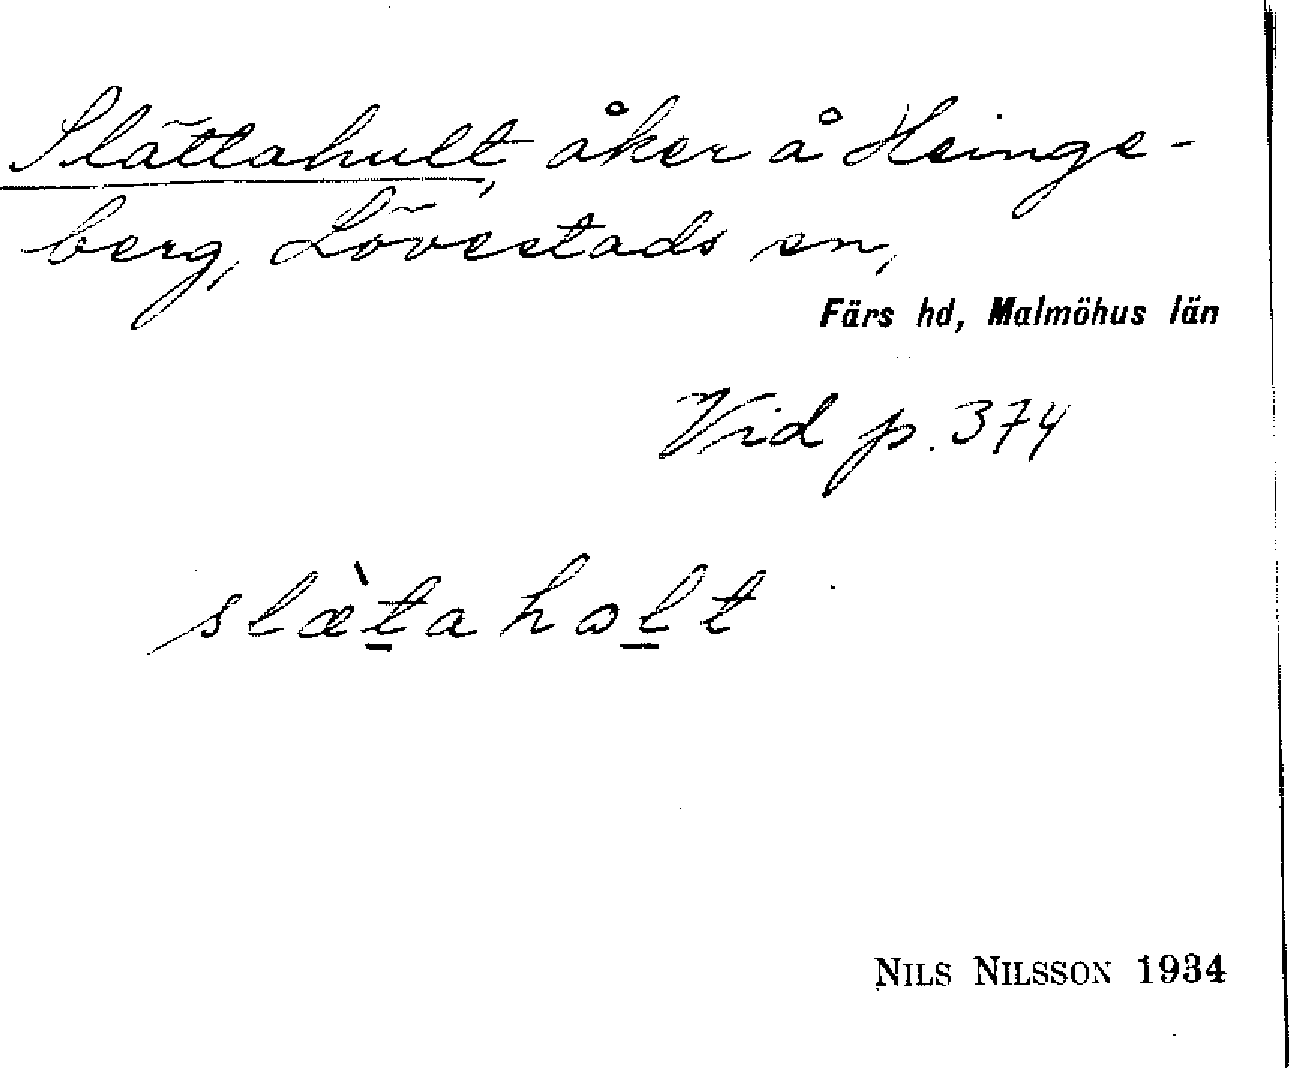 Slättahult, åker å Heinge-
berg, Lövestads sn,
Färs hd, Malmöhus län
Vid p. 374
slæ̀taholt
NILS NILSSON 1934